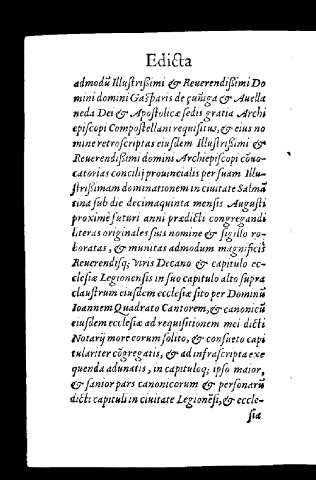 Edicta
admodũ Illustrissimi & Reuerendissimi Do
mini domini Gasparis de çuñiga & Auella
neda Dei & Apostolicæ sedis gratia Archi
episcopi Compostellani requisitus, & eius no
mine retroscriptas eiusdem Illustrissimi &
Reuerendissimi domini Archiepiscopi cõuo-
catorias concilij prouincialis per suam Illu-
strissimam dominationem in ciuitate Salmã
tina sub die decimaquinta mensis Augusti
proximè futuri anni prædicti congregandi
literas originales suis nomine & sigillo ro-
boratas, & munitas admodum magnificis
Reuerendisq; viris Decano & capitulo ec-
clesiæ Legionensis in suo capitulo alto supra
claustrum eiusdem ecclesiæ sito per Dominũ
Ioannem Quadrato Cantorem, & canonicũ
eiusdem ecclesiæ ad requisitionem mei dicti
Notarij more eorum solito, & consueto capi
tulariter cõgregatis, & ad infrascripta exe
quenda adunatis, in capituloq; ipso maior,
& sanior pars canonicorum & personarũ
dicti capituli in ciuitate Legionẽsi, & eccle-
siæ